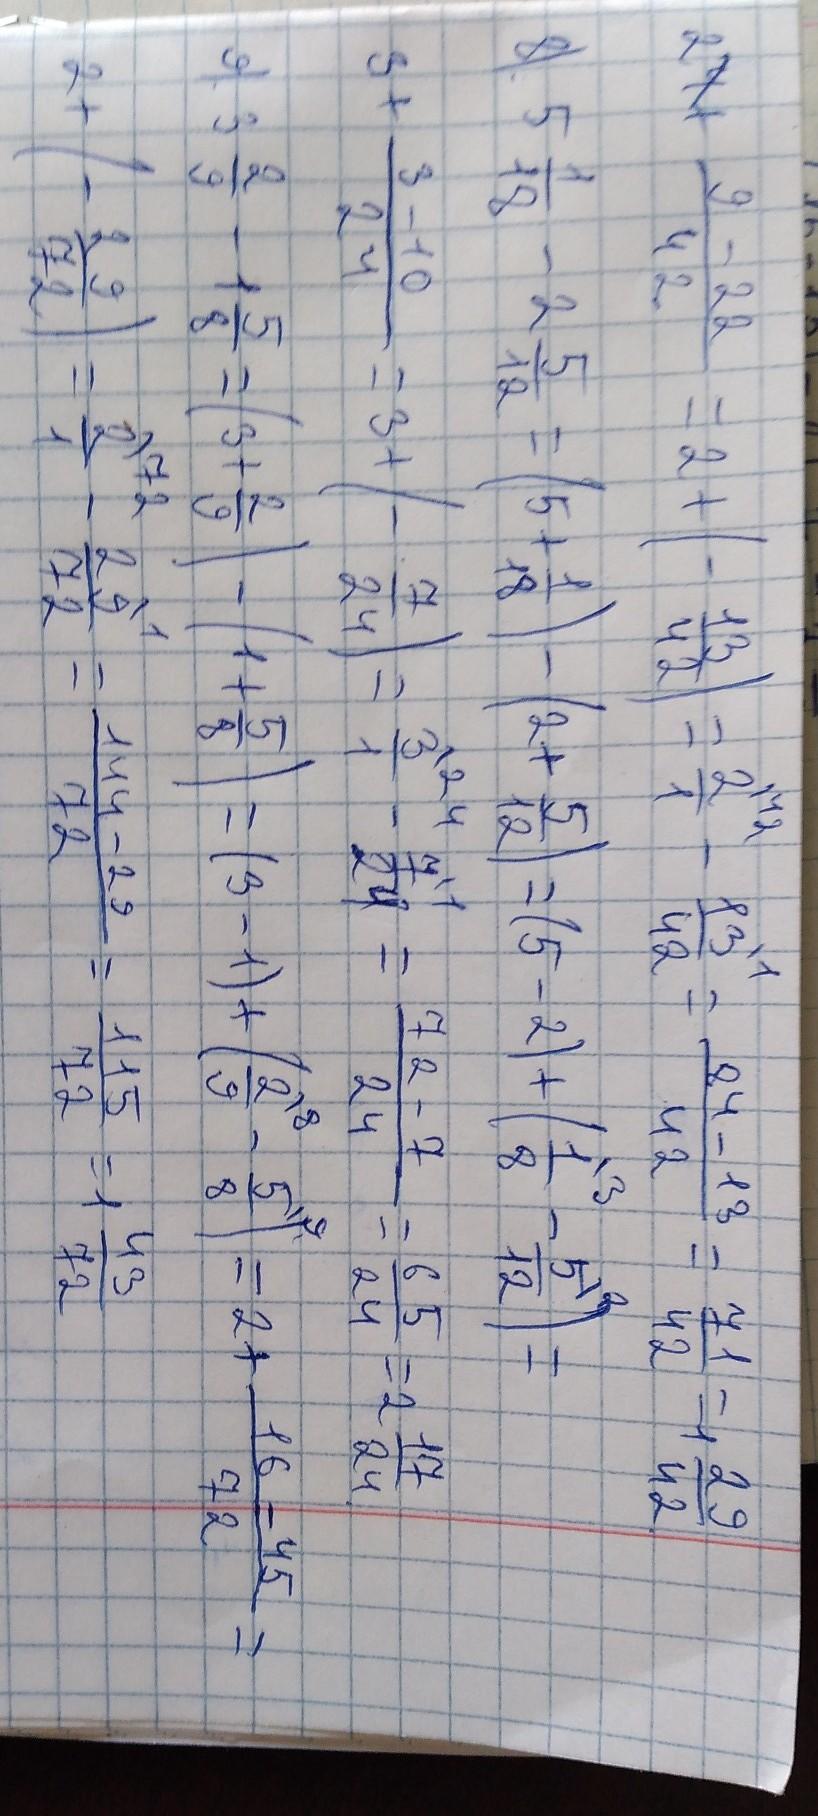 2+ (9-22)/42 = 2 + (- 13/42) = 2/1 ^{\42} - 13/42 ^{\1} = (84-13)/42 = 71/42 = 1 29/42
8) 5 1/18 - 2 5/12 = (5 + 1/18) - (2 + 5/12) = (5 - 2) + (1/8 ^{\3} - 5/12 ^{\2}) =
3 + (3-10)/24 = 3 + (- 7/24) = 3/1 ^{\24} - 7/24 ^{\1} = (72-7)/24 = 65/24 = 2 17/24
9) 3 2/9 - 1 5/8 = (3 + 2/9) - (1 + 5/8) = (3 - 1) + (2/9 ^{\8} - 5/8 ^{\9}) = 2 + (16-45)/72 =
2 + (- 29/72) = 2/1 ^{\72} - 29/72 ^{\1} = (144-29)/72 = 115/72 = 1 43/72